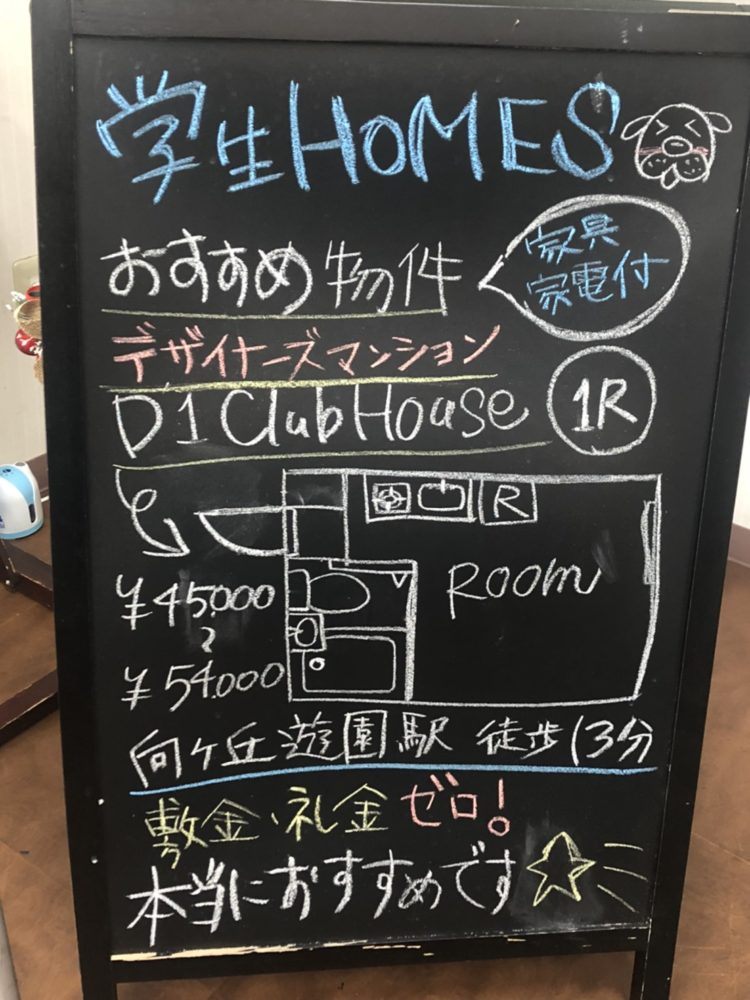 学生HOMES
おすすめ物件
家具
家電付
デザイナーズマンション
D1 ClubHouse
1R
R
Room
¥45.000
~
¥54.000
向ヶ丘遊園駅 徒歩13分
敷金・礼金 ゼロ!
本当におすすめです